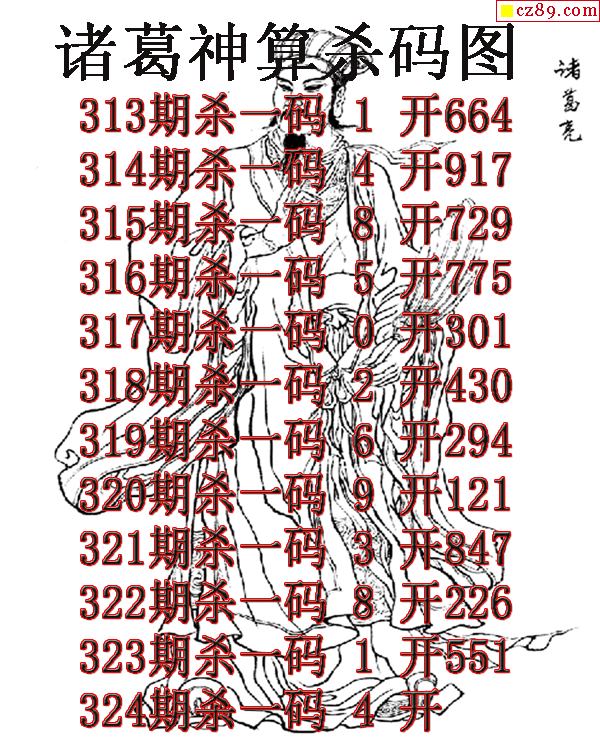 cz89.com
诸葛神算杀码图
诸葛亮
313期杀一码 1 开664
314期杀一码 4 开917
315期杀一码 8 开729
316期杀一码 5 开775
317期杀一码 0 开301
318期杀一码 2 开430
319期杀一码 6 开294
320期杀一码 9 开121
321期杀一码 3 开847
322期杀一码 8 开226
323期杀一码 1 开551
324期杀一码 4 开